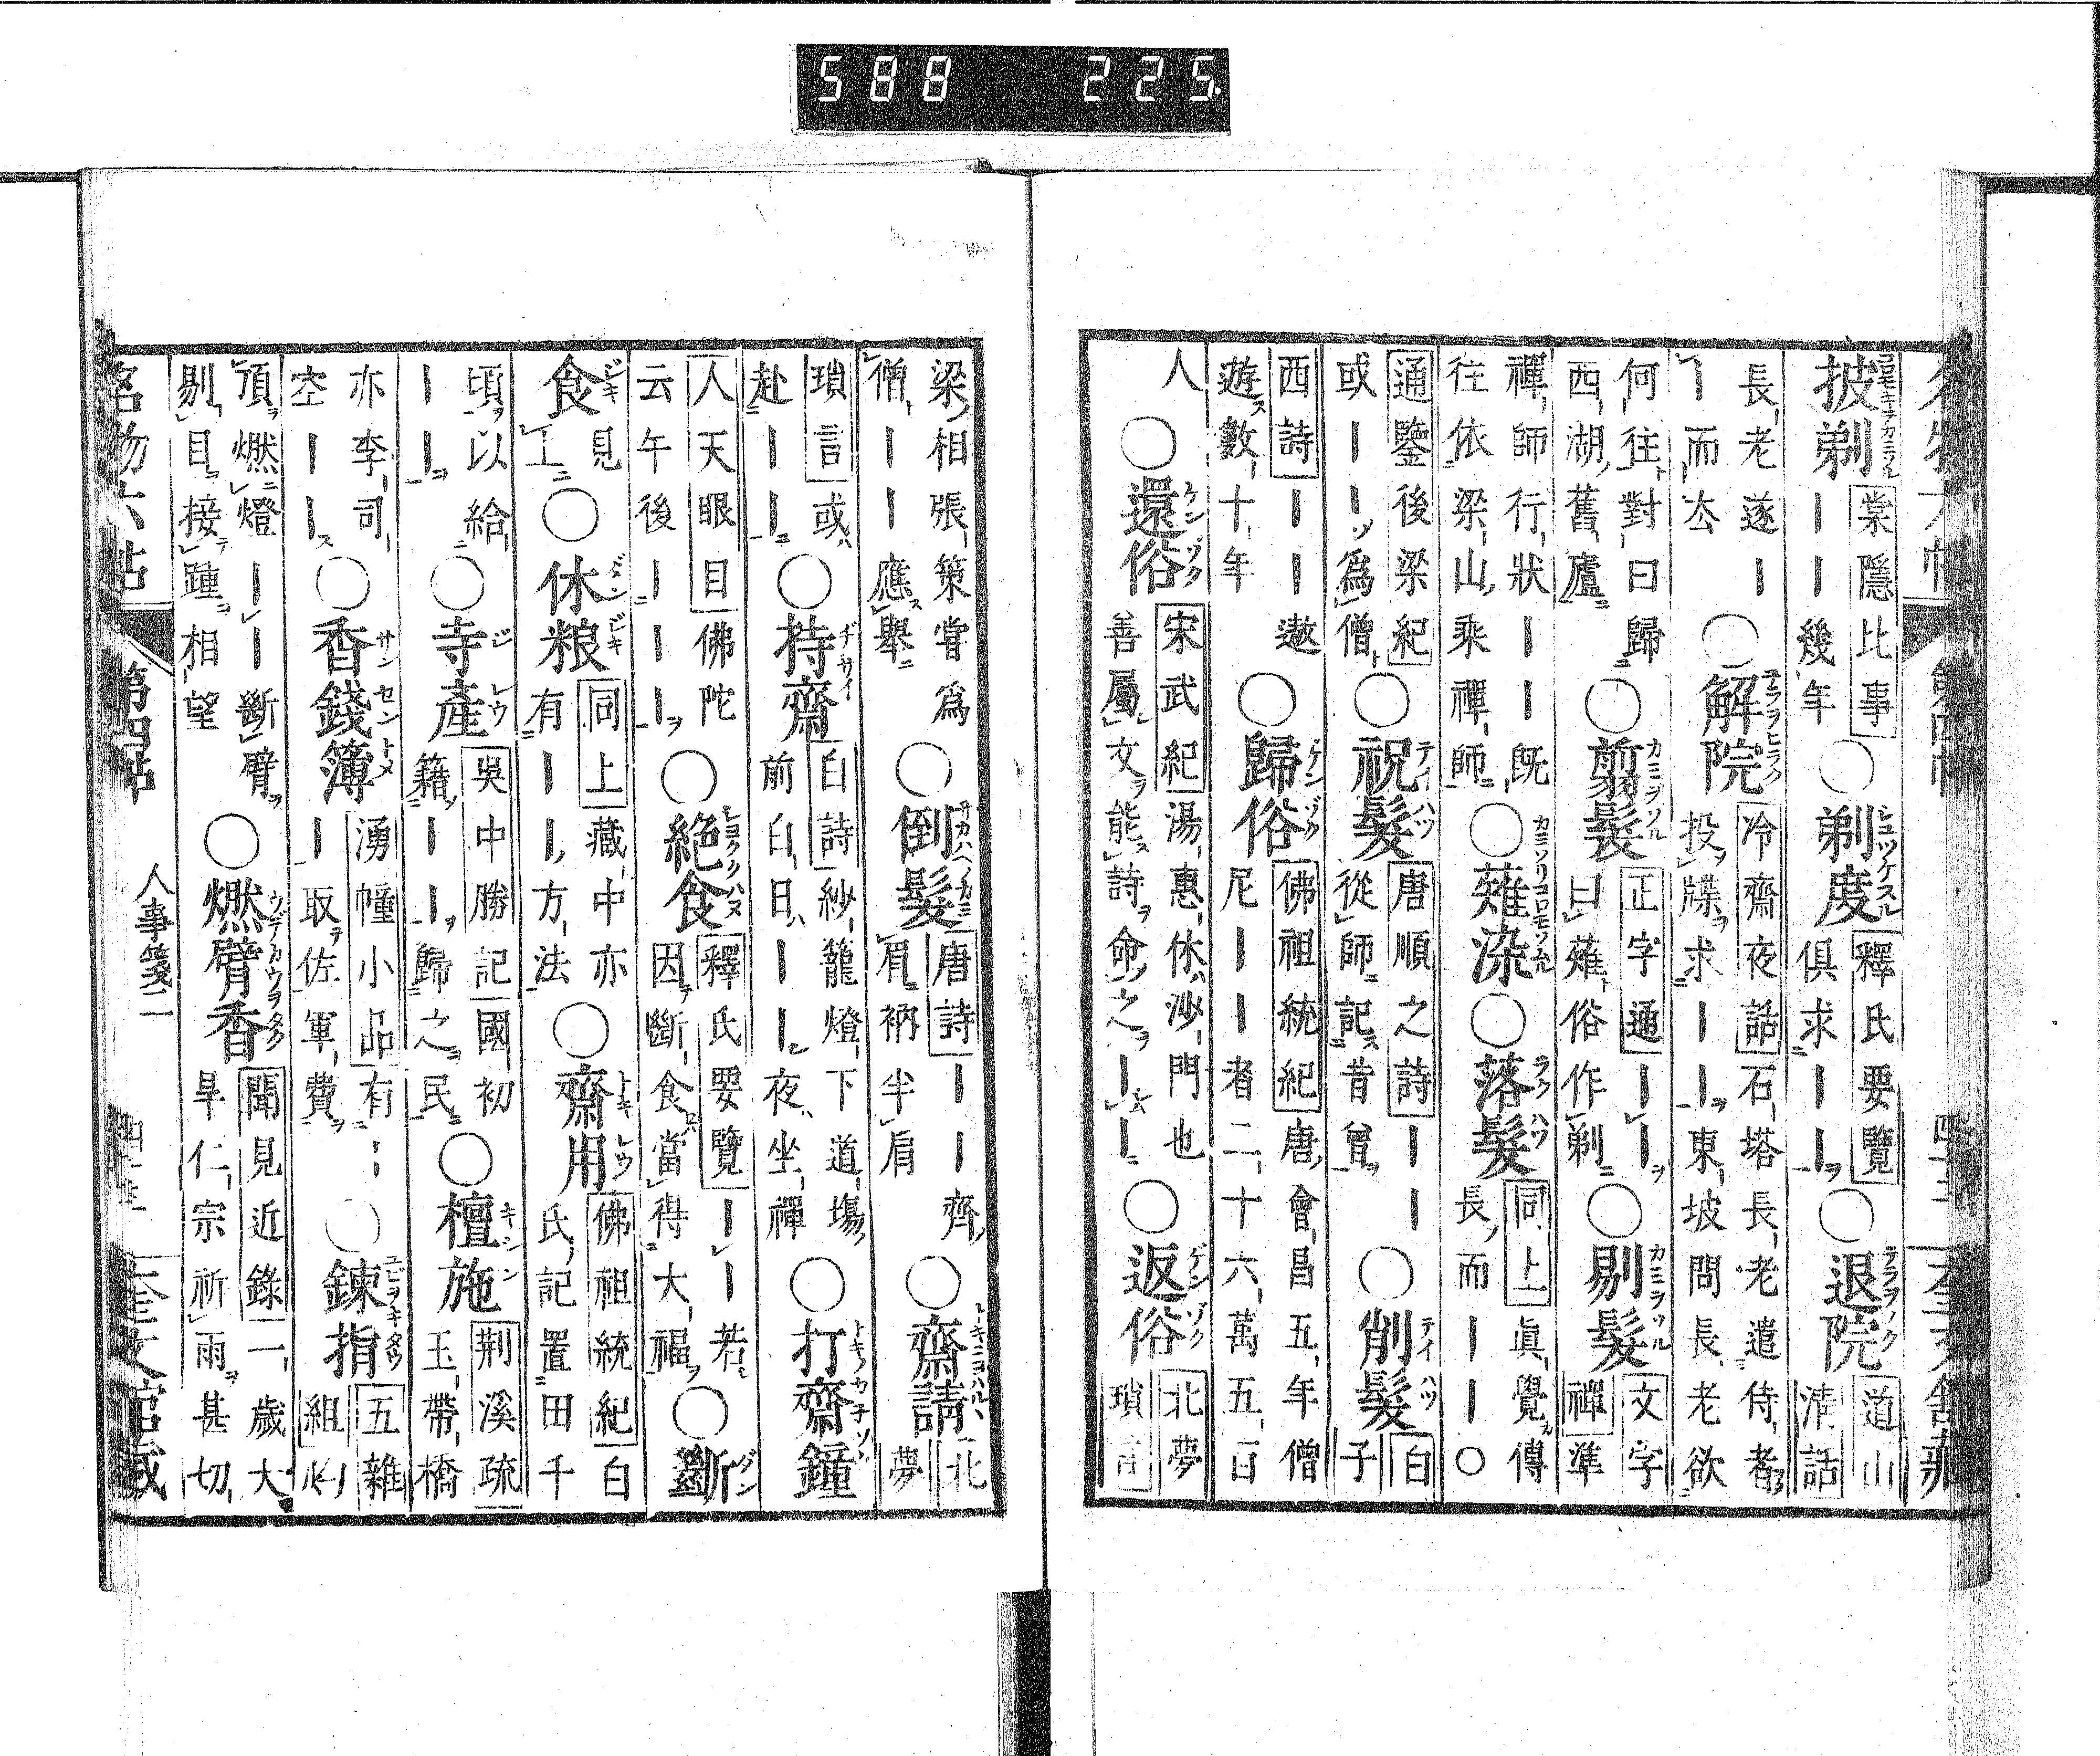 588 225
名物六帖 第四帖 奎文館藏
披剃 棠隱比事 ーー幾年 ○剃度 釋氏要覽 俱求ーー ○退院 道山清話
長老遂ーー而去 ○解院 冷齋夜話 石塔長老遣侍者投牒求ーー東坡問長老欲
何往對曰歸西湖舊廬 ○翦髮 正字通 ーー曰薙俗作剃 ○剔髮 文字禪 準
禪師行狀ーー既往依梁山乘禪師 ○薙染 ○落髮 同上 眞覺傳長而ーー○
通鑒後梁紀 或ーー爲僧 ○祝髮 唐順之詩 ーー從師記昔曾 ○削髮 白子
西詩 ーー遨遊數十年 ○歸俗 佛祖統紀 唐會昌五年僧尼ーー者二十六萬五百
人 ○還俗 宋武紀 湯惠休沙門也善屬文能詩命之ーー ○返俗 北夢瑣言
梁相張策嘗爲僧ーー應舉 ○倒髮 唐詩 ーー齊眉衲半肩 ○齋請 北夢
瑣言 或赴ーー ○持齋 白詩 紗籠燈下道場前白日ーー夜坐禪 ○打齋鐘
人天眼目 佛陀云午後ーーー ○絶食 釋氏要覽 ーー若因斷食當得大福 ○斷
食 見上 ○休粮 同上 藏中亦有ーー方法 ○齋用 佛祖統紀 白氏記置田千
頃以給ーー ○寺產 吳中勝記 國初籍ーー歸之民 ○檀施 荆溪疏 玉帶橋
亦李司空ーー ○香錢簿 湧幢小品 有ーー取佐軍費 ○鍊指 五雜組
頂燃燈ーー斷臂剔目接踵相望 ○燃臂香 聞見近錄 一歲大旱仁宗祈雨甚切
名物六帖 第四帖 人事箋二 奎文館藏